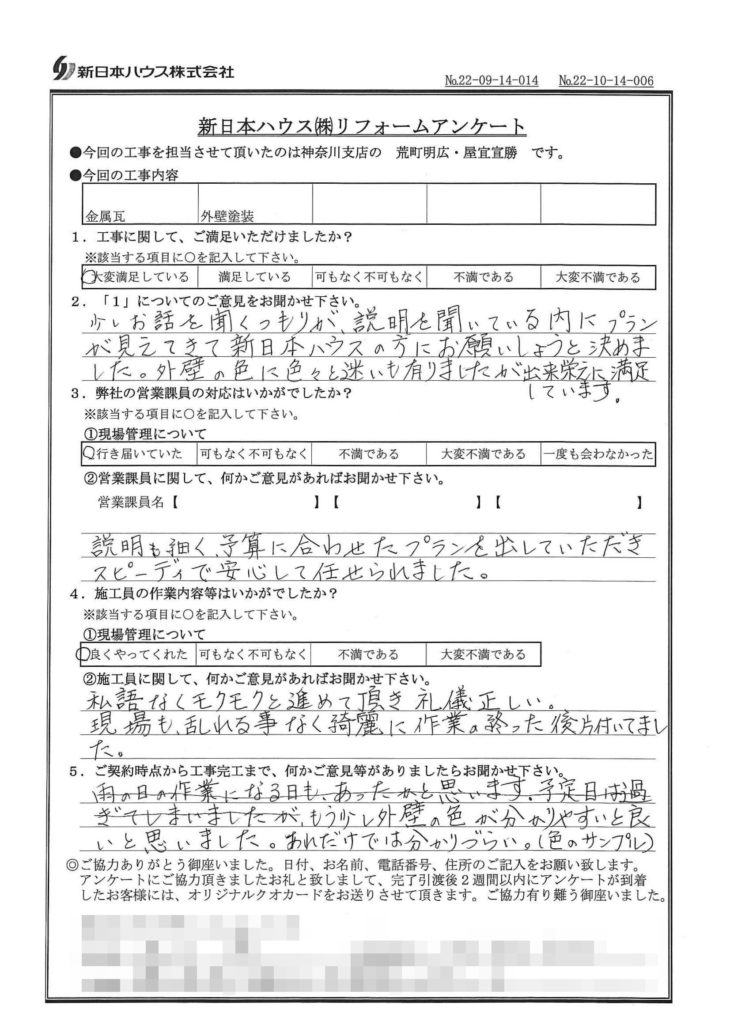 新日本ハウス株式会社
No.22-09-14-014 No.22-10-14-006
新日本ハウス㈱リフォームアンケート
●今回の工事を担当させて頂いたのは神奈川支店の 荒町明広・屋宜宣勝 です。
●今回の工事内容
金属瓦 外壁塗装
1．工事に関して、ご満足いただけましたか？
※該当する項目に○を記入して下さい。
大変満足している 満足している 可もなく不可もなく 不満である 大変不満である
2．「1」についてのご意見をお聞かせ下さい。
少しお話を聞くつもりが、説明を聞いている内にプラン
が見えてきて新日本ハウスの方にお願いしようと決めま
した。外壁の色に色々と迷いも有りましたが出来栄えに満足
しています。
3．弊社の営業課員の対応はいかがでしたか？
※該当する項目に○を記入して下さい。
①現場管理について
行き届いていた 可もなく不可もなく 不満である 大変不満である 一度も会わなかった
②営業課員に関して、何かご意見があればお聞かせ下さい。
営業課員名【 】【 】【 】
説明も細く、予算に合わせたプランを出していただき
スピーディで安心して任せられました。
4．施工員の作業内容等はいかがでしたか？
※該当する項目に○を記入して下さい。
①現場管理について
良くやってくれた 可もなく不可もなく 不満である 大変不満である
②施工員に関して、何かご意見があればお聞かせ下さい。
私語なくモクモクと進めて頂き礼儀正しい。
現場も、乱れる事なく綺麗に作業の終った後片付いてまし
た。
5．ご契約時点から工事完工まで、何かご意見等がありましたらお聞かせ下さい。
雨の日の作業になる日も、あったかと思います、予定日は過
ぎてしまいましたが、もう少し外壁の色が分かりやすいと良
いと思いました。あれだけでは分かりづらい。（色のサンプル）
◎ご協力ありがとう御座いました。日付、お名前、電話番号、住所のご記入をお願い致します。
アンケートにご協力頂きましたお礼と致しまして、完了引渡後２週間以内にアンケートが到着
したお客様には、オリジナルクオカードをお送りさせて頂きます。ご協力有り難う御座いました。